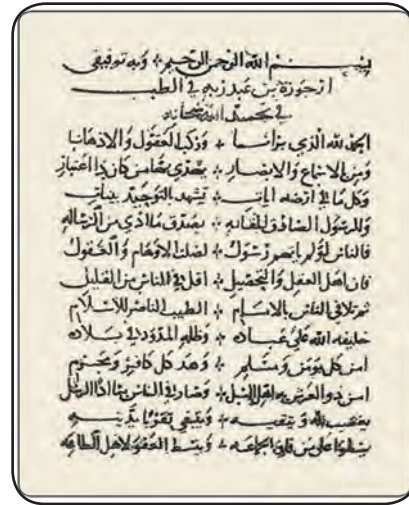 بسم الله الرحمن الرحيم ÷ وبه توفيقي
ارجوزة بن عبد ربه في الطب
في تحميد الله سبحانه
الحمد لله الذي برانا ÷ وركب العقول والاذهانا
ومن الاسماع والابصار ÷ يهتدي بها من كان ذا اعتبار
وكل ما في ارضه ايات ÷ تشهد التوحيد بينات
وللرسول الصادق المقاله ÷ بصدق ما ادى من الرساله
فالناس لو لم ياتهم رسول ÷ لضلت الاوهام والعقول
فان اهل العقل والتحصيل ÷ اقل في الناس من القليل
ثم تلافى الناس بالامام ÷ الطيب الناصر للاسلام
خليفه الله على عباده ÷ وظله الممدود في بلاده
امن كل مومن ومسلم ÷ وهد كل كافر ومجرم
امن ذو العرش به اهل السبل ÷ وصار في الناس
يغضب لله ويتقيه ÷ ويبتغي
يسطو على من فارق الجماعه ÷ ويبسط العفو لاهل الطاعه